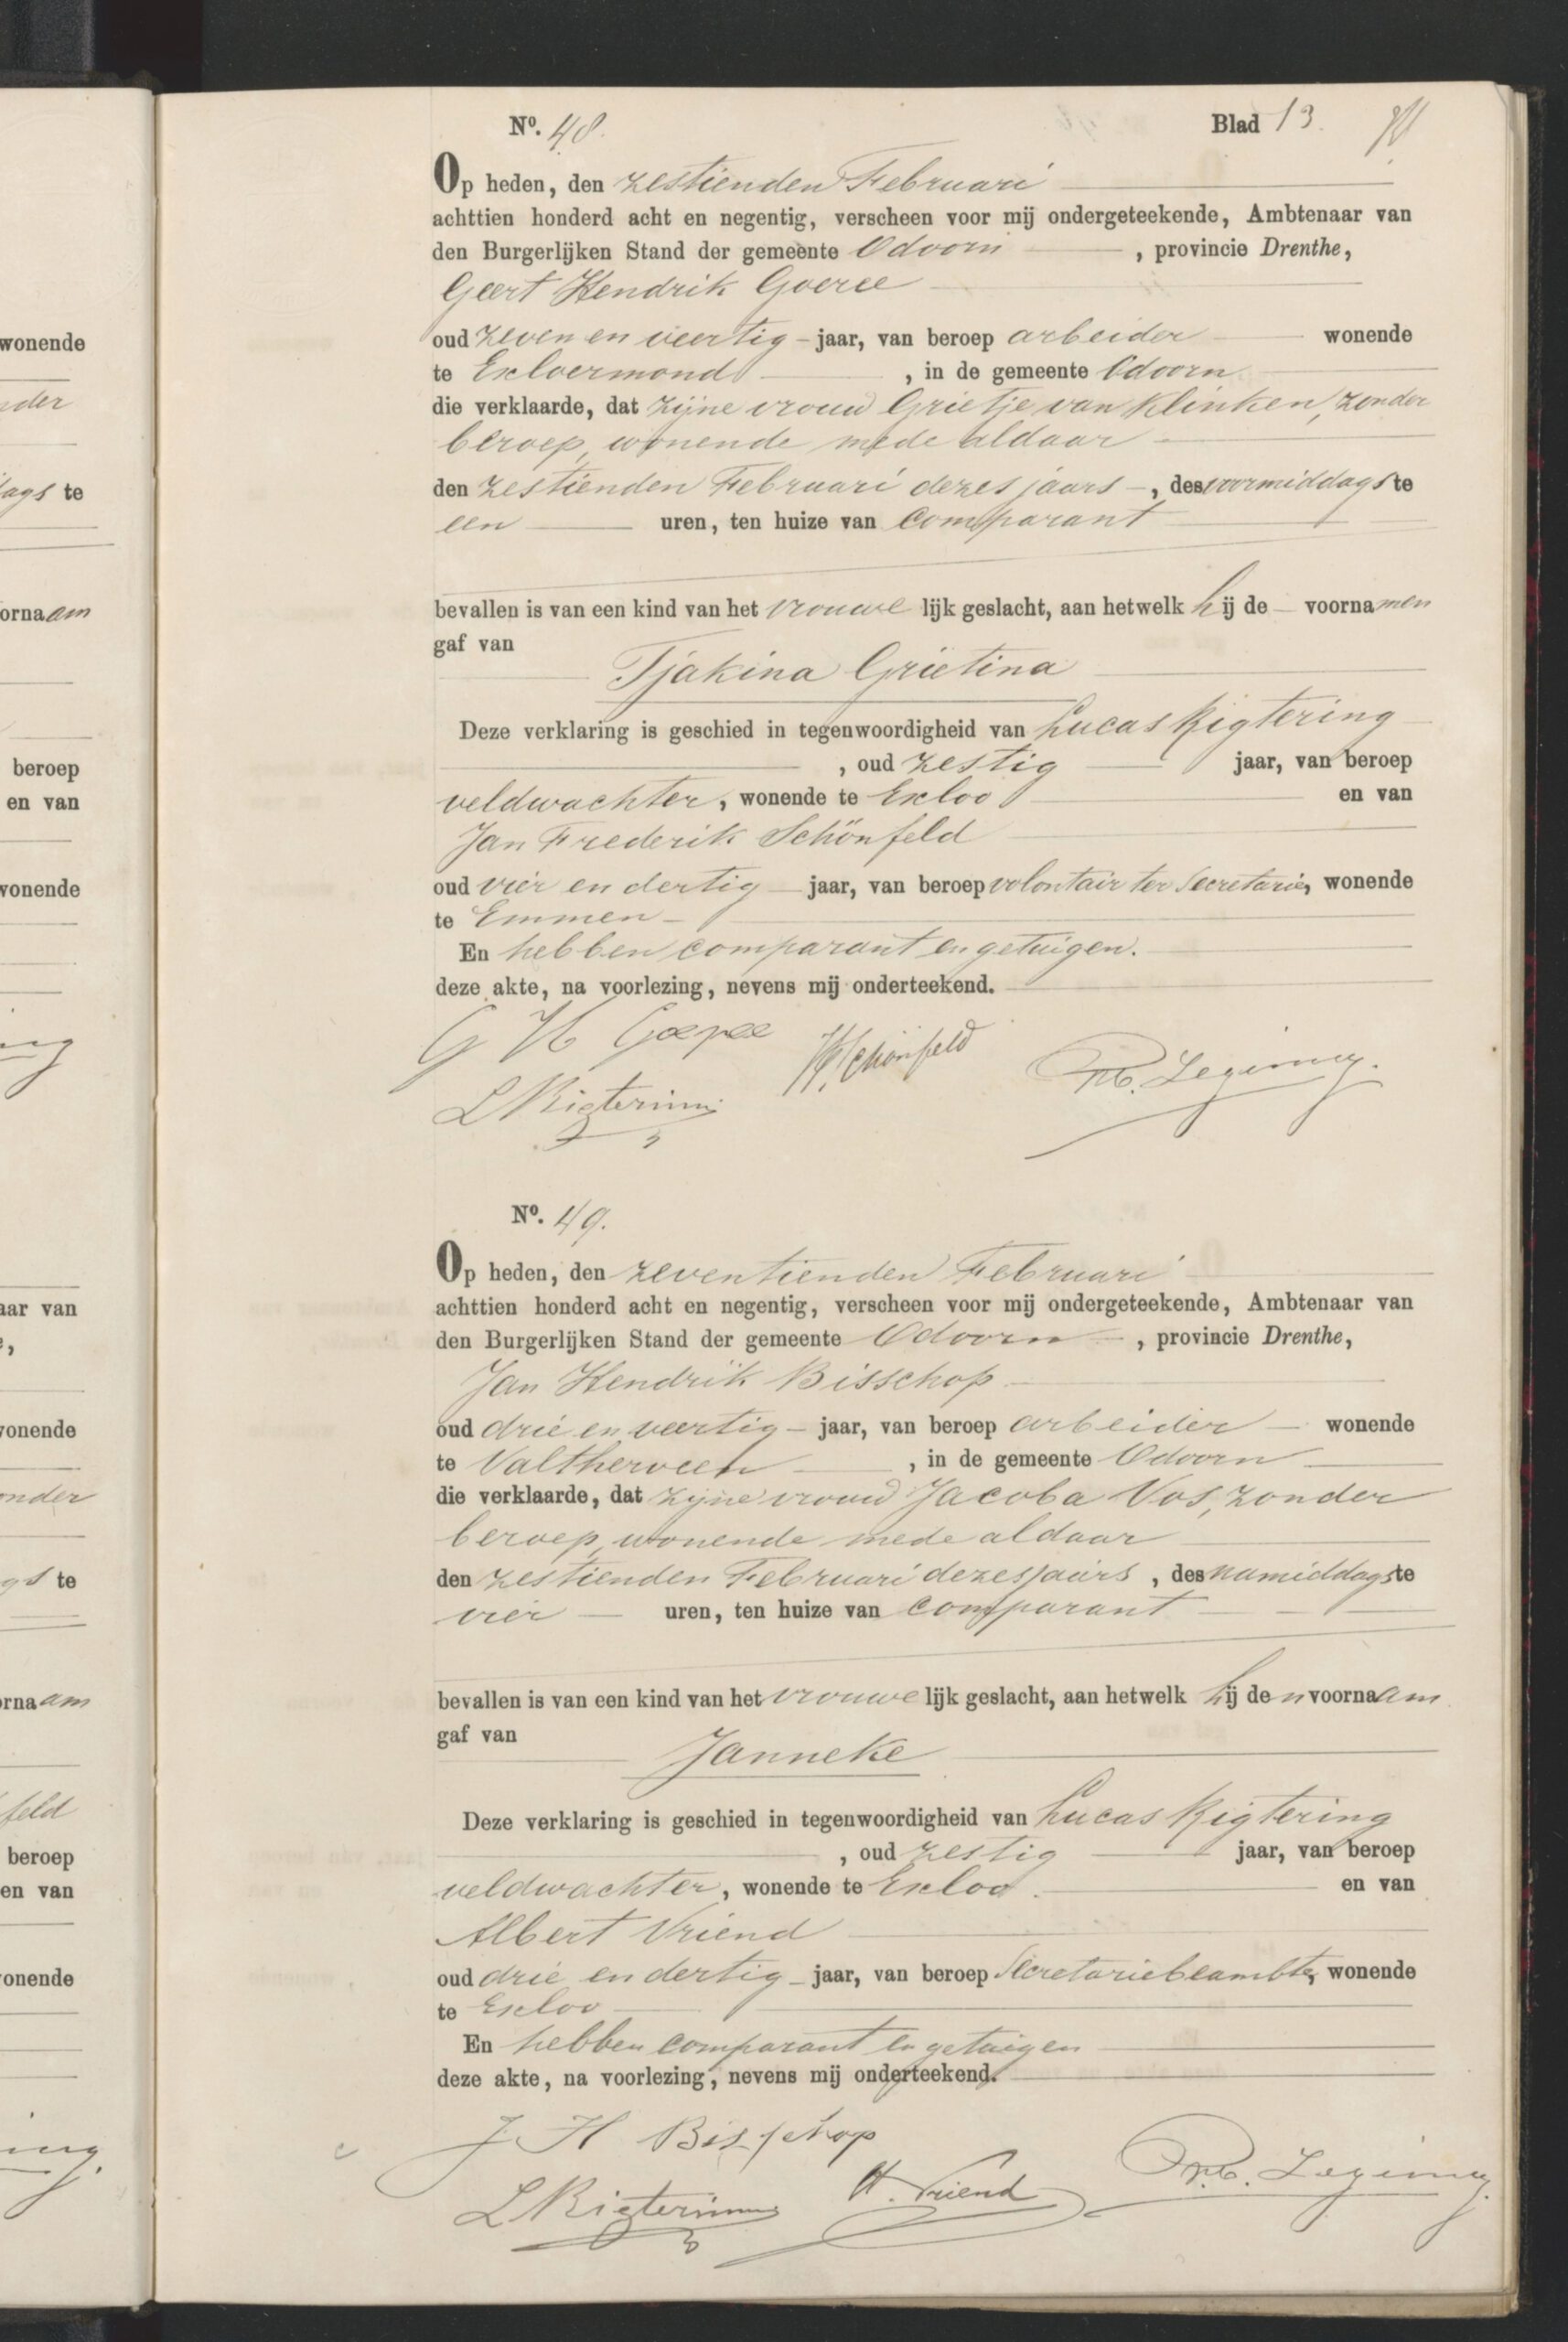 Nº. 48. Blad 13.
Op heden, den zestienden Februari
achttien honderd acht en negentig, verscheen voor mij ondergeteekende, Ambtenaar van
den Burgerlijken Stand der gemeente Odoorn, provincie Drenthe,
Geert Hendrik Goeree
oud zeven en veertig jaar, van beroep arbeider wonende
te Exloermond, in de gemeente Odoorn
die verklaarde, dat zijne vrouw Grietje van Klinken, zonder
beroep, wonende mede aldaar
den zestienden Februari dezes jaars, des voormiddags te
een uren, ten huize van comparant
bevallen is van een kind van het vrouwelijk geslacht, aan hetwelk hij de voornamen
gaf van
Tjakina Grietina
Deze verklaring is geschied in tegenwoordigheid van Lucas Rigtering
, oud zestig jaar, van beroep
veldwachter, wonende te Exloo en van
Jan Frederik Schönfeld
oud vier en dertig jaar, van beroep volontair ter Secretarie, wonende
te Emmen
En hebben comparant en getuigen.
deze akte, na voorlezing, nevens mij onderteekend.
G H Goeree Schönfeld
L Rigtering
Nº. 49.
Op heden, den zeventienden Februari
achttien honderd acht en negentig, verscheen voor mij ondergeteekende, Ambtenaar van
den Burgerlijken Stand der gemeente Odoorn, provincie Drenthe,
Jan Hendrik Bisschop
oud drie en veertig jaar, van beroep arbeider wonende
te Valtherveen, in de gemeente Odoorn
die verklaarde, dat zijne vrouw Jacoba Vos, zonder
beroep, wonende mede aldaar
den zestienden Februari dezes jaars, des namiddags te
vier uren, ten huize van comparant
bevallen is van een kind van het vrouwelijk geslacht, aan hetwelk hij den voornaam
gaf van
Janneke
Deze verklaring is geschied in tegenwoordigheid van Lucas Rigtering
, oud zestig jaar, van beroep
veldwachter, wonende te Exloo en van
Albert Vriend
oud drie en dertig jaar, van beroep Secretariebeambte, wonende
te Exloo
En hebben comparant en getuigen
deze akte, na voorlezing, nevens mij onderteekend.
J H Bisschop
L Rigtering A. Vriend